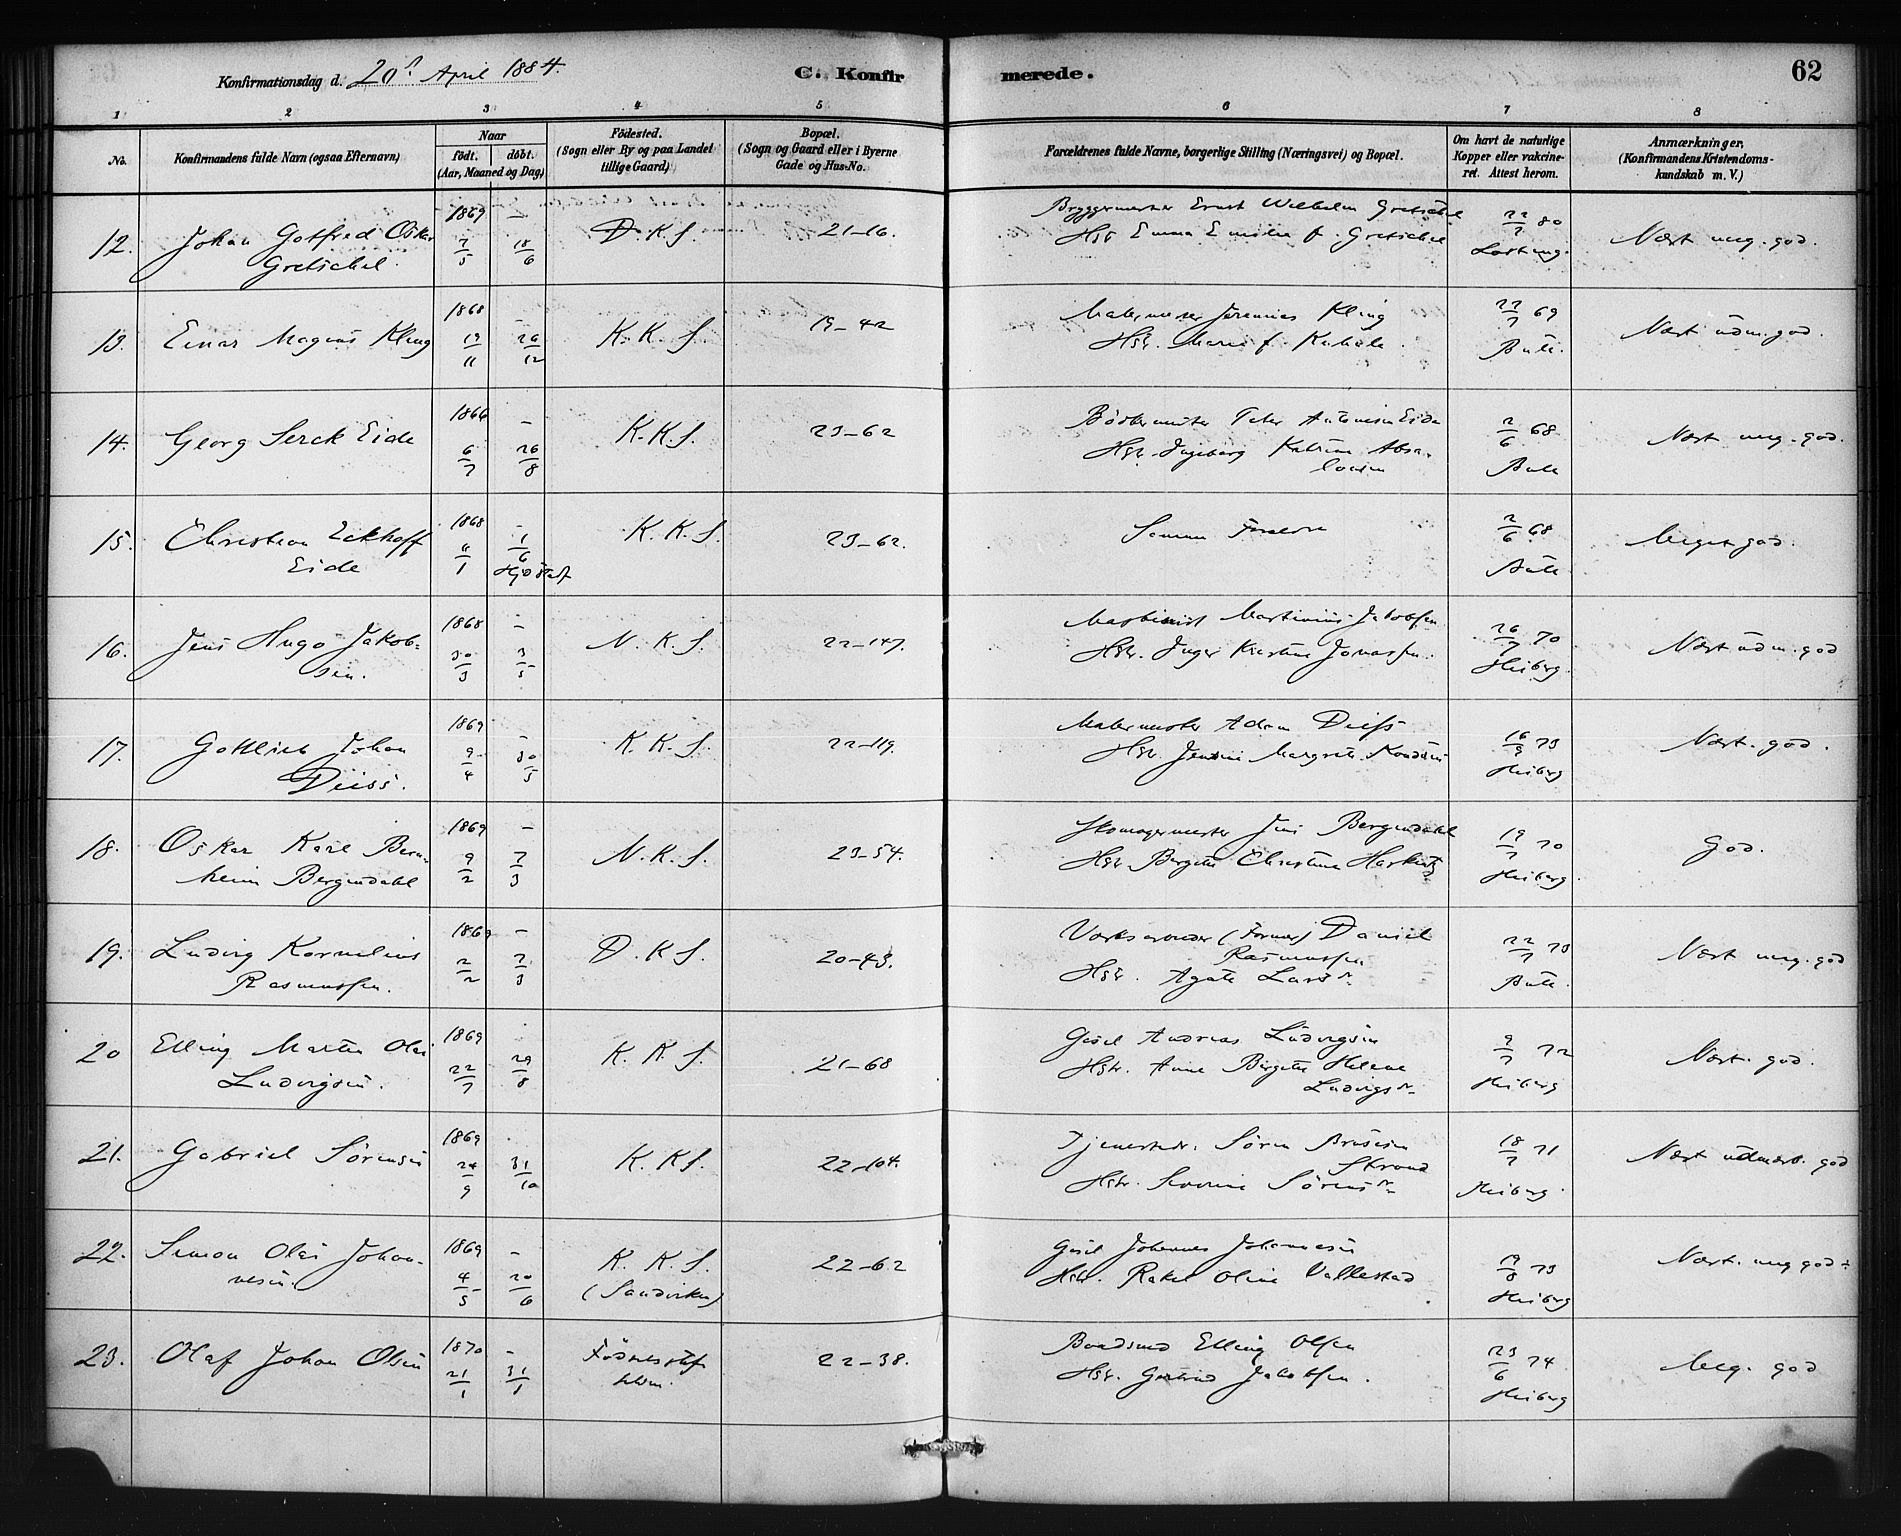 Konfirmationsdag d. 20de April 1884.
C. Konfirmerede.
62
1 2 3 4 5 6 7 8
No.
Konfirmandens fulde Navn (ogsaa Efternavn)
Naar
födt. döbt.
(Aar, Maaned og Dag)
Födested.
(Sogn eller By og paa Landet
tillige Gaard)
Bopæl.
(Sogn og Gaard eller i Byerne
Gade og Hus-No.
Forældrenes fulde Navne, borgerlige Stilling (Næringsvei) og Bopæl.
Om havt de naturlige
Kopper eller vakcine-
ret. Attest herom.
Anmærkninger,
(Konfirmandens Kristendoms-
kundskab m. V.)
12. Johan Gotfred Oskar
Gretschel
1869 –
7/5 18/6
D.K.S.
21–16.
Bryggermester Ernst Wilhelm Gretschel
Hstr Emma Emilie f. Gretschel
22/7 80
Nært meg. god.
13. Einar Magnus Kling
1868 –
19/11 26/12
K.K.S.
19–42
Malermester Jeremias Kling
Hstr. Marie f.
22/7 69
Nært udm. god.
14. Georg Serck Eide
1866 –
6/7 26/8
K.K.S.
23–62
Bödkermester Peter Antonsen Eide
Hstr. Ingeborg Katrine Absa-
lonsen
2/6 68
Nært meg. god.
15. Christian Eckhoff
Eide
1868 –
6/1 1/6
K.K.S.
23–62.
Samme Forældre
2/6 68
Meget god.
16. Jens Hugo Jakob-
sen.
1868 –
30/3 3/5
N.K.S.
22–147.
Maskinist Martinius Jakobsen
Hstr. Inger Kirstine Jonassen.
26/7 70
Heiberg.
Nært udm. god
17. Gottlieb Johan
Deiss.
1869 –
9/4 30/5
K.K.S.
22–119.
Malermester Adam Deiss
Hstr. Jensine Margrete
16/9 73
Heiberg
Nært. god.
18. Oskar Karl Bern-
heim Bergendahl
1869 –
9/2 7/3
N.K.S.
23–54.
Skomagermester Jens Bergendahl
Hstr. Bergitte Christine
19/7 70
Heiberg.
God.
19. Ludvig Kornelius
Rasmussen.
1869 –
2/2 7/3
D.K.S.
20–43.
(Former) Daniel
Rasmussen
Hstr. Agate Larsdr.
22/7 73
Nært meg. god
20 Elling Martin Olai
Ludvigsen.
1869
22/7 29/8
K.K.S.
21–68
Gesel Andreas Ludvigsen
Hstr. Anne Bergitte Helene
Ludvigsdr.
9/7 72
Heiberg
Nært. god.
21. Gabriel Sörensen
1869
24/9 31/10
K.K.S.
22–104.
Sören
Strand
Hstr. Severine Sörensdr.
18/7 71
Heiberg.
Nært udmærk. god
22. Simon Olai Johan-
nesen.
1869 –
4/5 20/6
K.K.S.
(Sandviken)
22–62
Gesel Johannes Johannesen
Hstr. Rakel Oline Vallestad
19/8 73
Heiberg
Nært. meg god÷
23. Olaf Johan Olsen
1870 –
21/1 31/1
Födselsstif-
telsen
22–38.
Baadsmd Elling Olsen
Hstr. Gertrud Jakobsen.
23/6 74
Heiberg
Meg. god